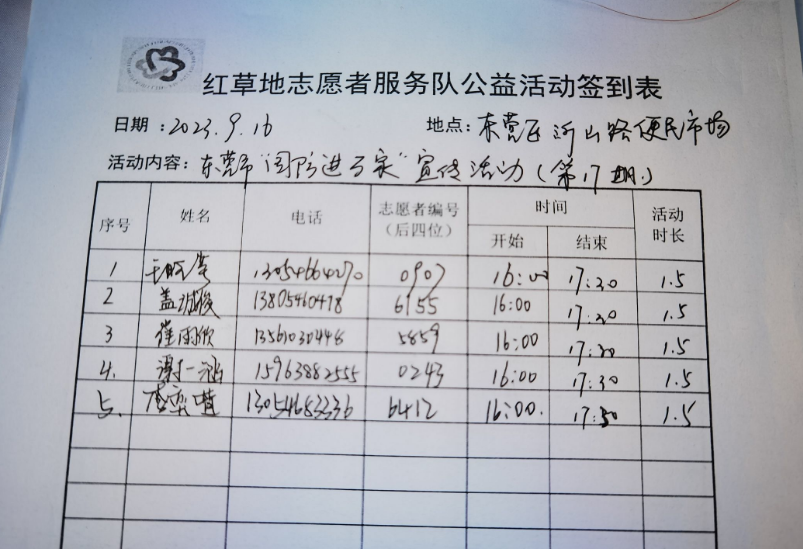 红草地志愿者服务队公益活动签到表
日期：2023.9.16 地点：东营区沂山路便民市场
活动内容：东营市“国防进万家”宣传活动（第17期）
序号 姓名 电话 志愿者编号（后四位） 时间 开始 结束 活动时长
1 13054664270 0907 16:00 17:30 1.5
2 13805460478 6155 16:00 17:30 1.5
3 13561030448 5859 16:00 17:30 1.5
4. 谢一涵 15963882555 0243 16:00 17:30 1.5
5. 13054653336 6412 16:00. 17:30 1.5